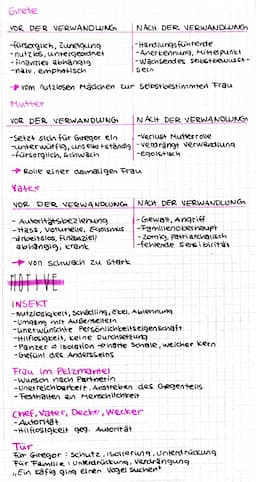 Grete
VOR DER VERWANDLUNG NACH DER VERWANDLUNG
-fürsorglich, Zuneigung -Handlungsführende
-nutzlos, untergeordnet -Anerkennung, Mittelpunkt
-finanziell abhängig -Wachsendes Selbstbewusst-
-naiv, emphatisch sein
→ vom nutzlosen Mädchen zur selbstbestimmten Frau
Mutter
VOR DER VERWANDLUNG NACH DER VERWANDLUNG
-Setzt sich für Gregor ein -Verlust Mutterrolle
-unterwürfig, unselbstständig -verdrängt Verwandlung
-fürsorglich, schwach -egoistisch
→ Rolle einer damaligen Frau
Vater
VOR DER VERWANDLUNG NACH DER VERWANDLUNG
-Autoritätsbeziehung -Gewalt, Angriff
-Hass, Vorurteile, Egoismus -Familienoberhaupt
-arbeitslos, finanziell -Zornig, patriarchalisch
abhängig, krank -fehlende Sensibilität
→ von schwach zu stark
MOTIVE
INSEKT
-Nutzlosigkeit, Schädling, Ekel, Ablehnung
-Umgang mit Außenseitern
-unerwünschte Persönlichkeitseigenschaft
-Hilflosigkeit, keine Durchsetzung
-Panzer = Isolation → harte Schale, weicher Kern
-Gefühl des Andersseins
Frau im Pelzmantel
-Wunsch nach Partnerin
-Unerreichbarkeit, Anstreben des Gegenteils
-Festhalten an Menschlichkeit
Chef, Vater, Decke, Wecker
-Autorität
-Hilflosigkeit geg. Autorität
Tür
Für Gregor: Schutz, Isolierung, Unterdrückung
Für Familie: Unterdrückung, Verdrängung
„Ein Käfig ging einen Vogel suchen"